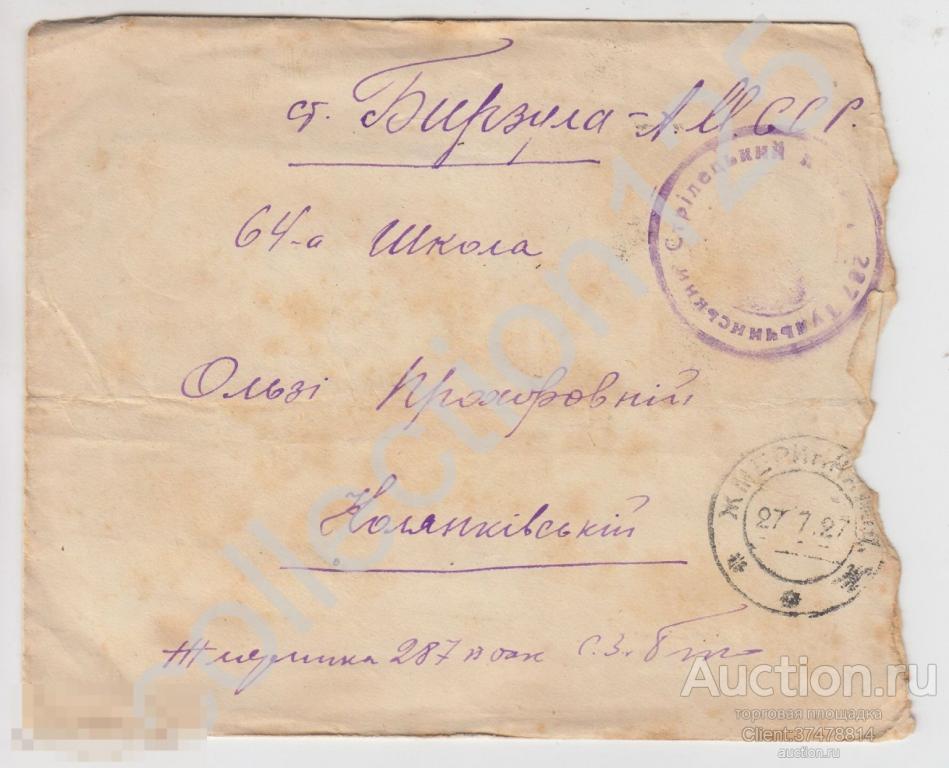 ст. Бирзула - А.М.ССР.
Стрілецький
287 Тульчинський
64-а Школа
Ользі Прохоровній
ЖМЕРИНКА
27.7.27
Колянківській
Жмеринка 287 полк С.З.
collection125
Auction.ru
торговая площадка
Client:37478814
auction.ru